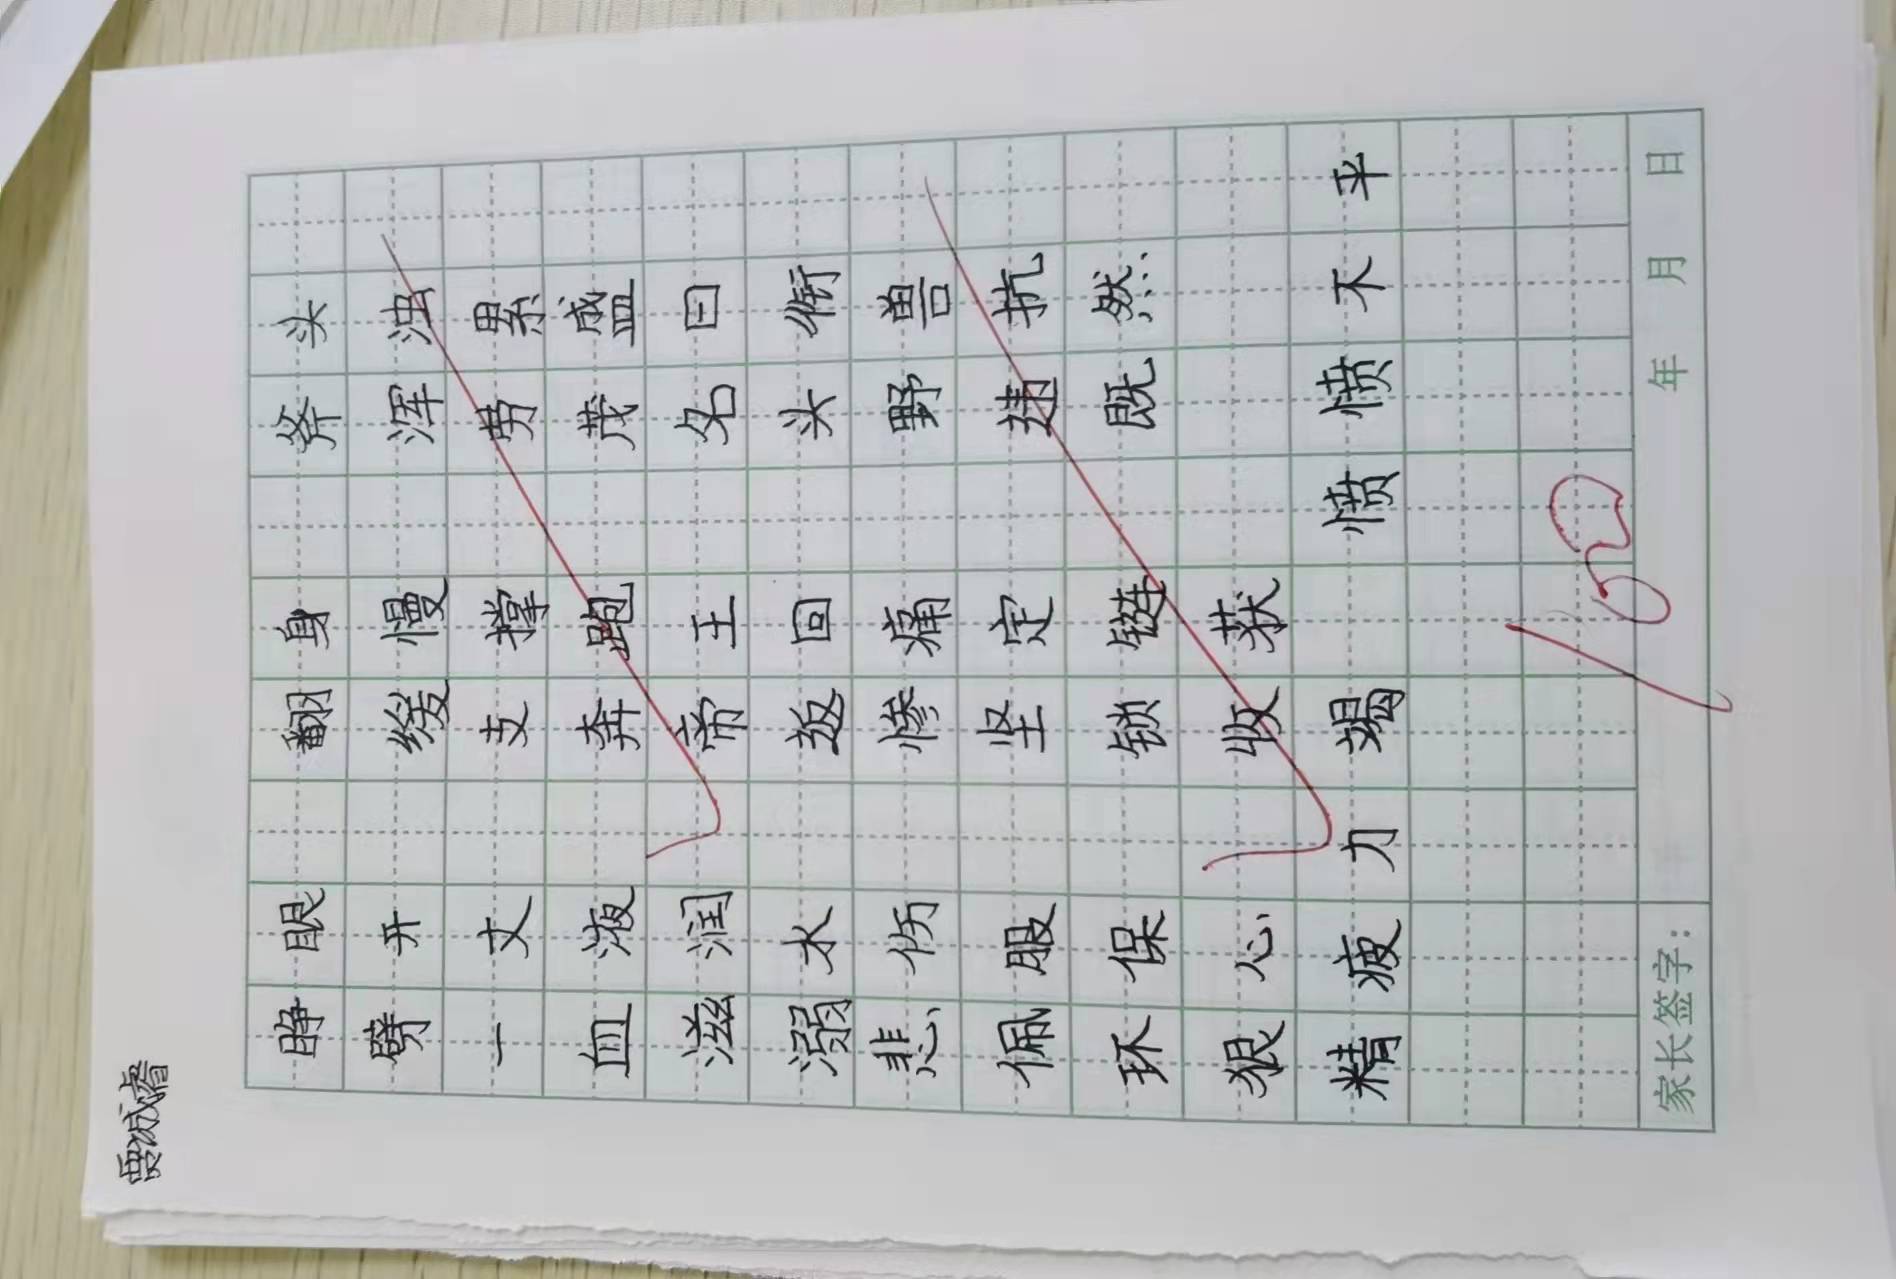 贾诚睿
睁眼 翻身 斧头
劈开 缓慢 浑浊
一丈 支撑 劳累
血液 奔跑 茂盛
滋润 帝王 名曰
溺水 返回 头衔
悲伤 惨痛 野兽
佩服 坚定 违抗
环保 锁链 既然
狠心 收获
精疲力竭 愤愤不平
100
家长签字: 年 月 日